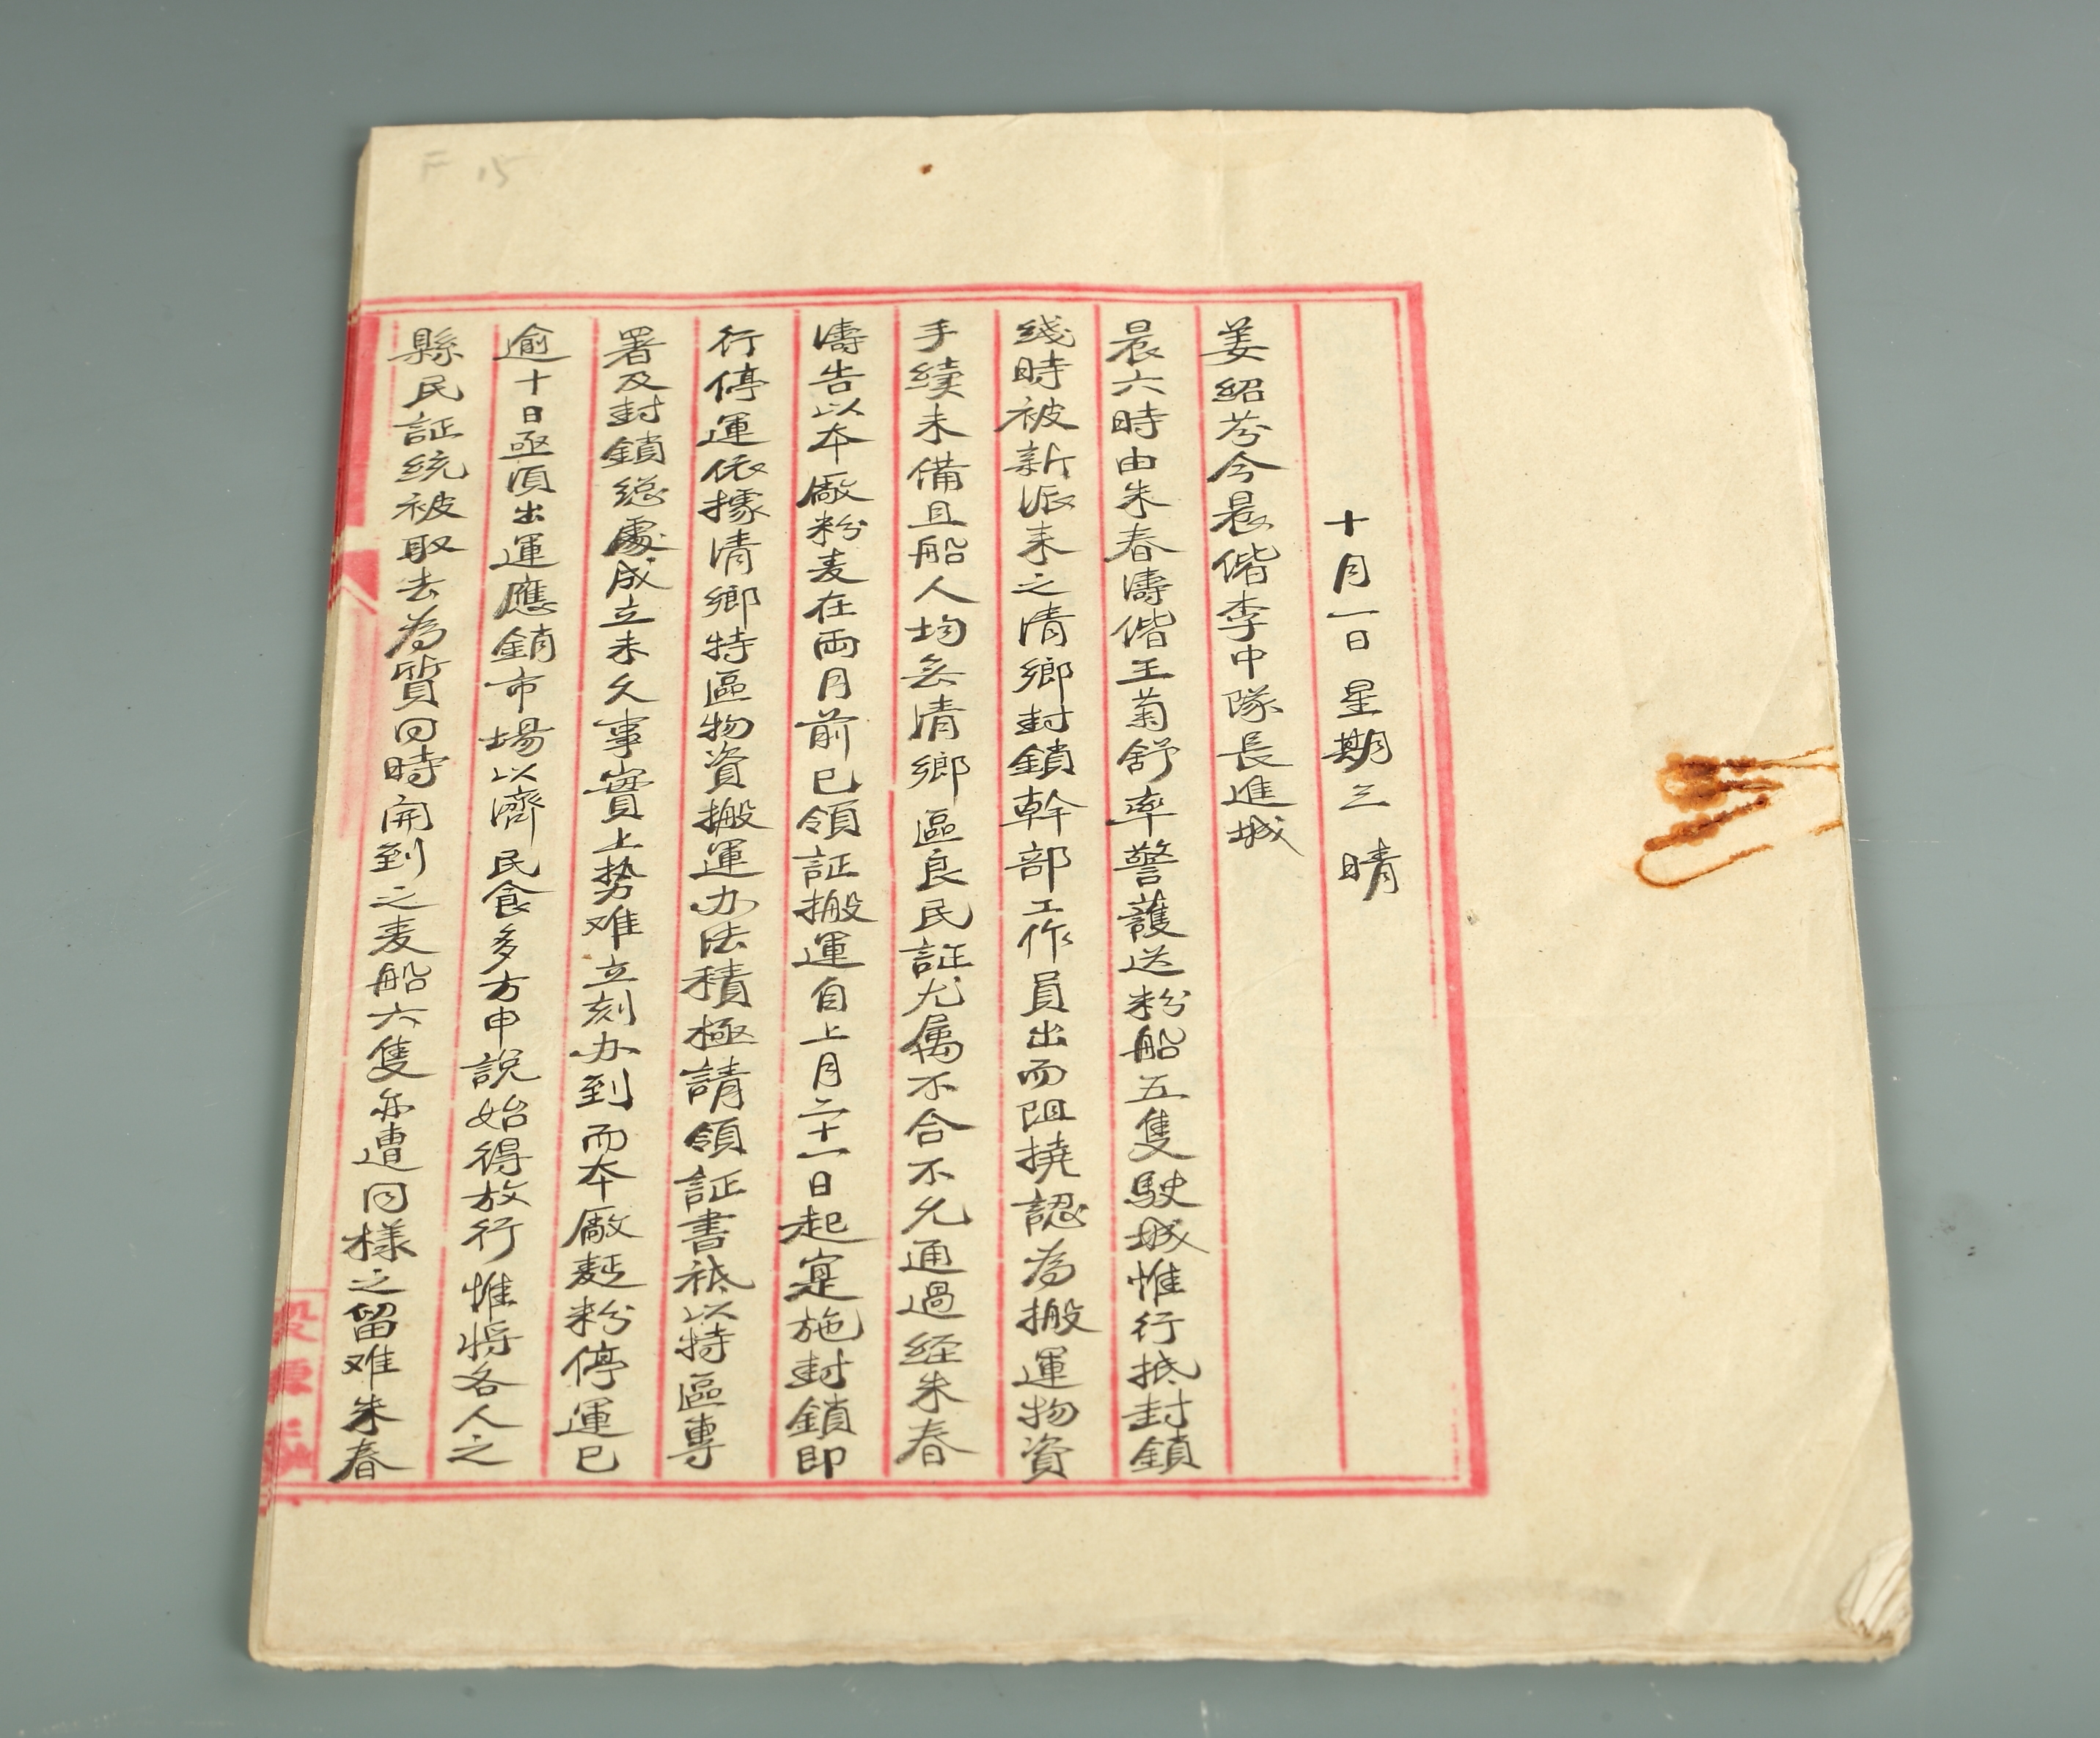 十月一日星期三 晴
姜紹芬今晨偕李中隊長進城
晨六時由朱春濤偕王菊舒率警護送粉船五隻駛城惟行抵封鎖
綫時被新派来之清鄉封鎖幹部工作員出而阻撓認為搬運物資
手續未備且船人均無清鄉區良民証尤属不合不允通過経朱春
濤告以本廠粉麦在両月前已領証搬運自上月二十一日起寔施封鎖即
行停運依據清鄉特區物資搬運办法積極請領証書祗以特區專
署及封鎖総處成立未久事實上势难立刻办到而本廠麺粉停運已
逾十日亟須出運應銷市場以濟民食多方申説始得放行惟将各人之
縣民証統被取去為質同時開到之麦船六隻亦遭同様之留难朱春
F 15